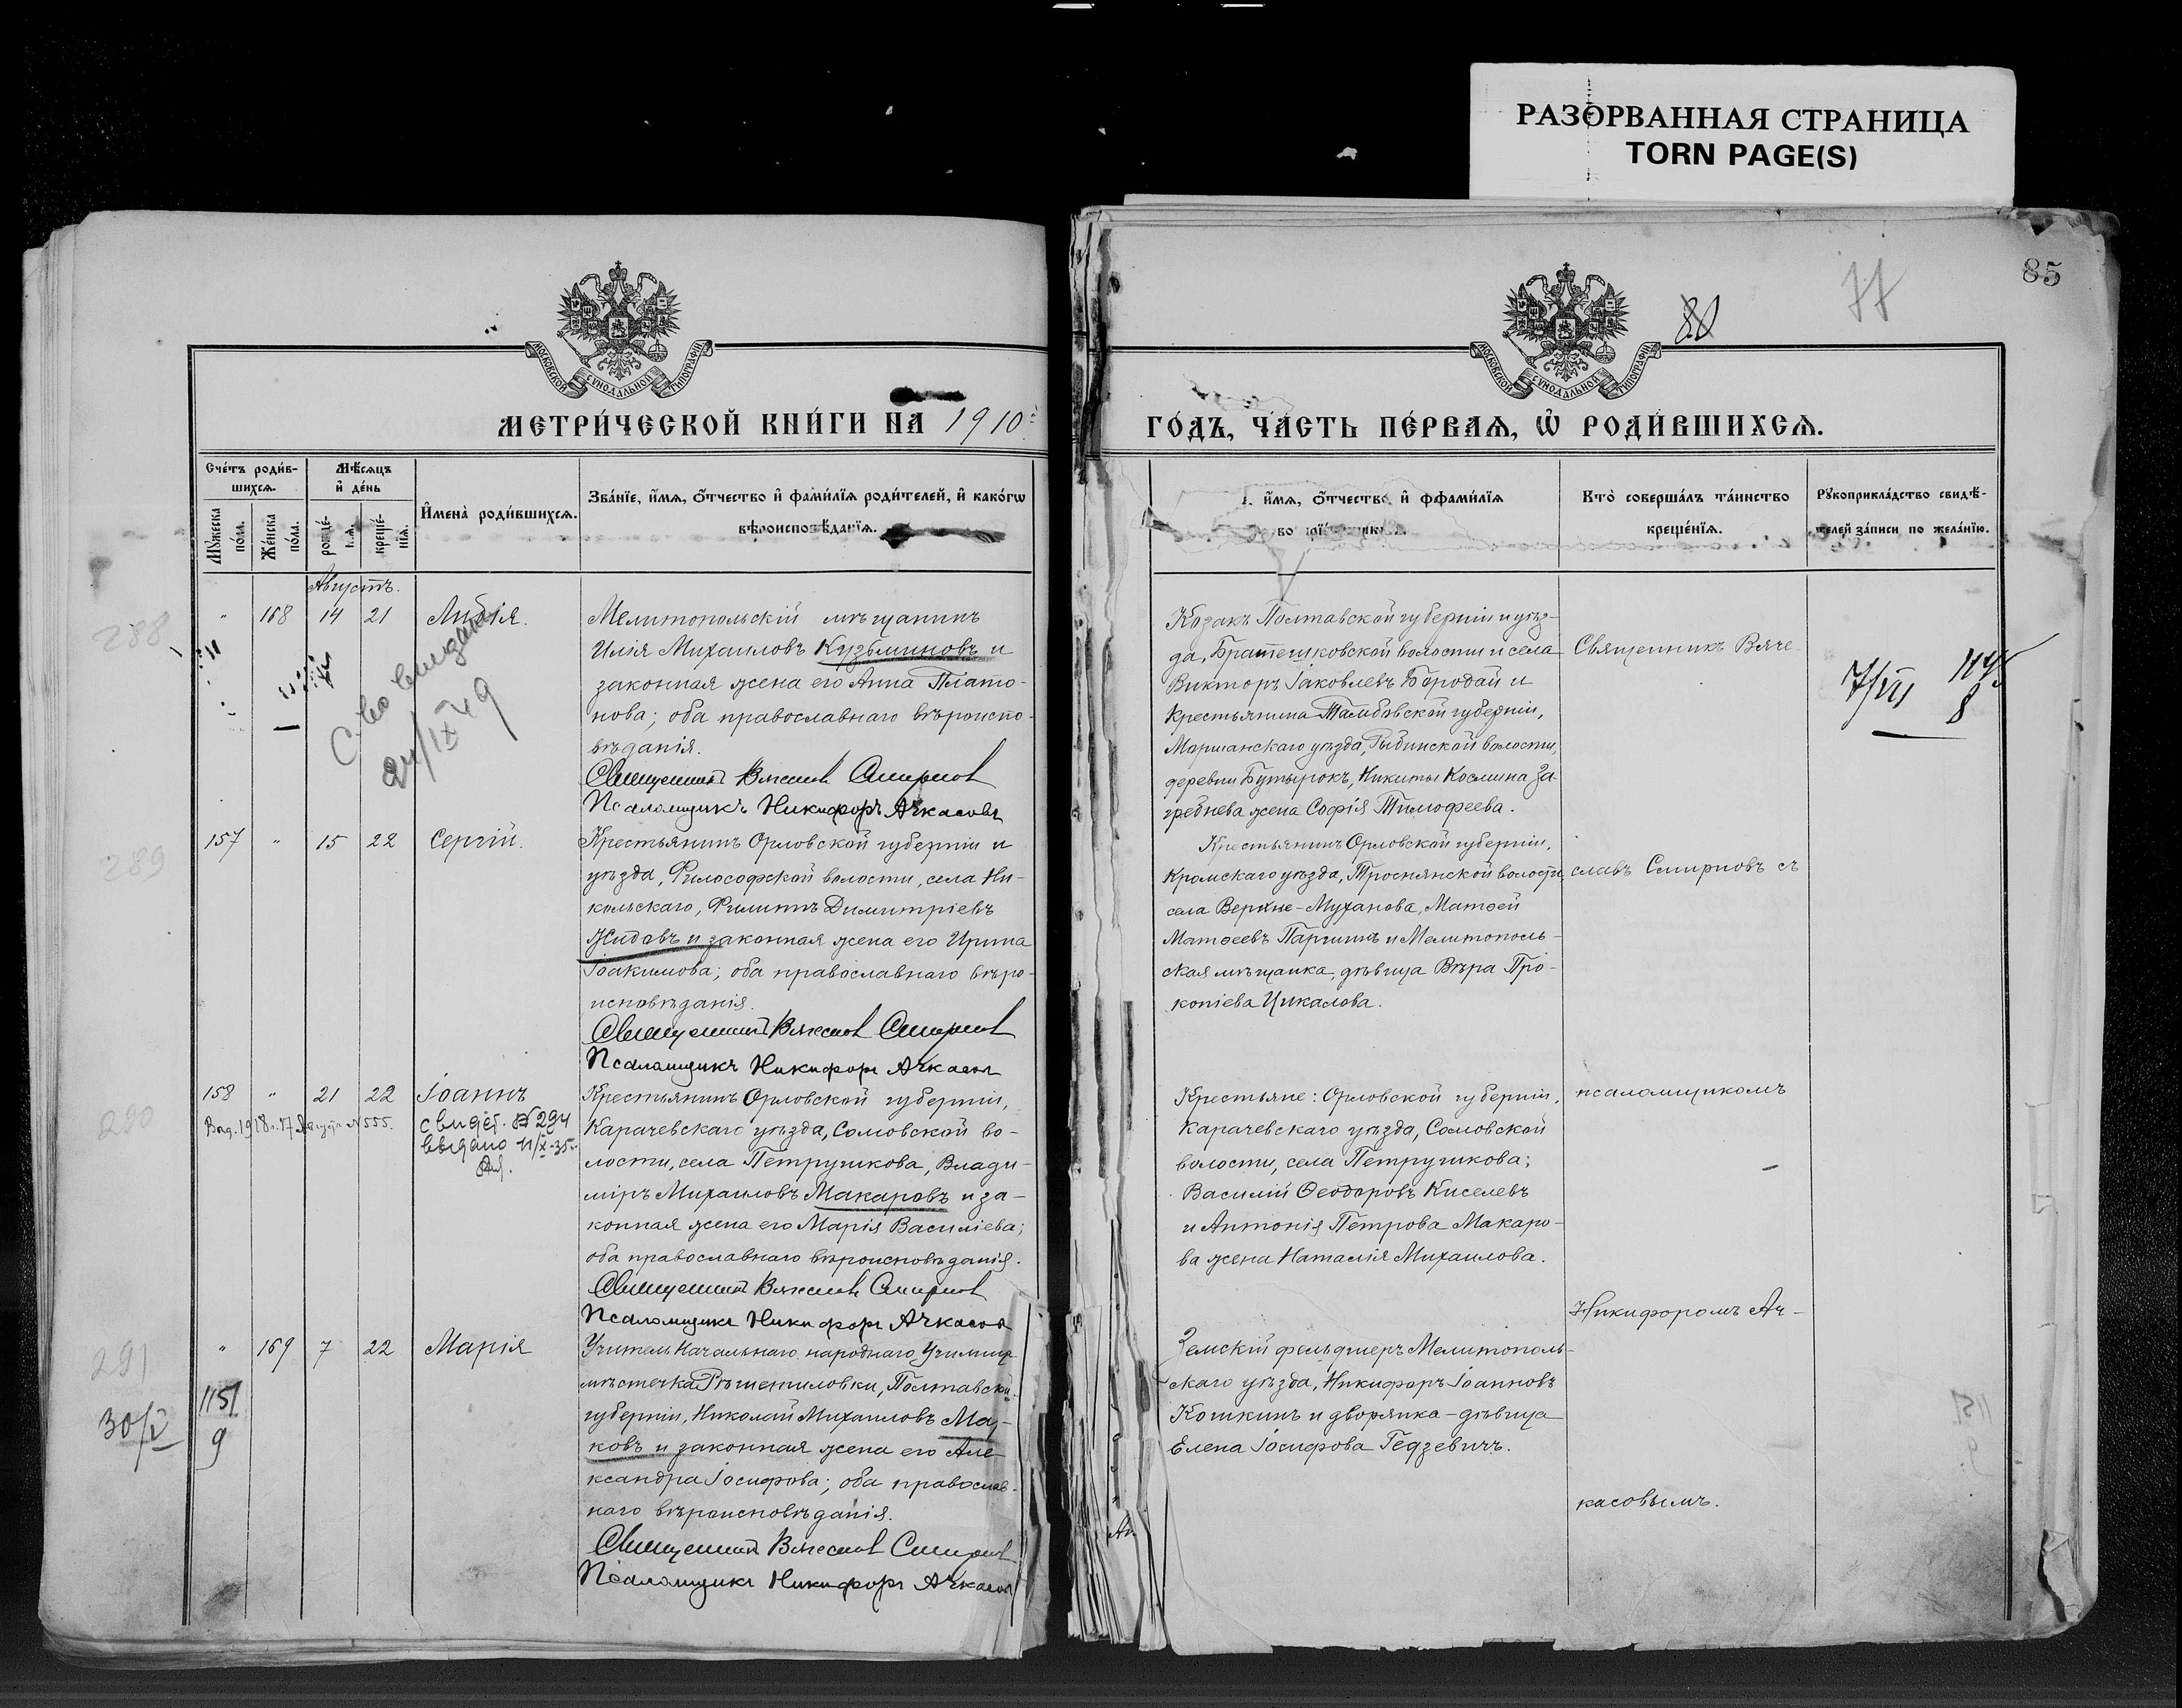 РАЗОРВАННАЯ СТРАНИЦА
TORN PAGE(S)
85
77
80
МОСКОВСКОЙ СѴНОДАЛЬНОЙ ТИПОГРАФІИ
МОСКОВСКОЙ СѴНОДАЛЬНОЙ ТИПОГРАФІИ
МЕТРИ́ЧЕСКОЙ КНИ́ГИ НА 1910
ГО́ДЪ, ЧА́СТЬ ПЕ́РВАѦ, Ѡ҆ РОДИ́ВШИХСѦ.
Сче́тъ роди́в-
шихсѧ.
Мѣ́сѧцъ
и҆ де́нь
Мꙋ́жеска
по́ла.
Же́нска
по́ла.
рожде́-
нїѧ.
креще́-
нїѧ.
И҆мена̀ роди́вшихсѧ.
Зва́нїе, и҆́мѧ, ѻ҆́тчество и҆ фами́лїѧ роди́телей, и҆ како́гѡ
вѣроисповѣ́данїѧ.
и҆́мѧ, ѻ҆́тчество и҆ ффами́лїѧ
Кто̀ соверша́лъ та́инство
креще́нїѧ.
Рꙋкоприкла́дство свидѣ́-
телей за́писи по жела́нїю.
Августъ.
288
" 168 14 21 Лидія.
Мелитопольскій мѣщанинъ
Илія Михаиловъ Кузьминовъ и
законная жена его Анна Плато-
нова; оба православнаго вѣроиспо-
вѣданія.
Священникъ Вячеславъ Смирновъ
Псаломщикъ Никифоръ Ачкасовъ
С-во выдано
24/IX 49
Козакъ Полтавской губерніи и уѣз-
да, Братешковской волости и села
Викторъ Іаковлевъ Бородай и
крестьянина Тамбовской губерніи,
Моршанскаго уѣзда, Рыбинской волости,
деревни Бутырокъ, Никиты Космина За-
гребнева жена Софія Тимофеева.
Священникъ Вяче-
7/VII
8
289
157 " 15 22 Сергій.
Крестьянинъ Орловской губерніи и
уѣзда, Философской волости, села Ни-
кольскаго, Филиппъ Димитріевъ
Жидовъ и законная жена его Ирина
Іоакимова; оба православнаго вѣро-
исповѣданія.
Священникъ Вячеславъ Смирновъ
Псаломщикъ Никифоръ Ачкасовъ
Крестьянинъ Орловской губерніи,
Кромскаго уѣзда, Троснянской волости,
села Верхне-Муханова, Матѳей
Матѳеевъ Паршинъ и Мелитополь-
ская мѣщанка, дѣвица Вѣра Про-
копіева Цикалова.
славъ Смирновъ съ
290
158 " 21 22 Іоаннъ
Выд. 1918 г. 17 Августа №555.
свидет. № 294
выдано 11/X-35 г.
Крестьянинъ Орловской губерніи,
Карачевскаго уѣзда, Сомовской во-
лости, села Петрушкова, Влади-
міръ Михаиловъ Макаровъ и за-
конная жена его Марія Василіева;
оба православнаго вѣроисповѣданія.
Священникъ Вячеславъ Смирновъ
Псаломщикъ Никифоръ Ачкасовъ
Крестьяне: Орловской губерніи,
Карачевскаго уѣзда, Сомовской
волости, села Петрушкова;
Василій Ѳеодоровъ Киселевъ
и Антонія Петрова Макаро-
ва жена Наталія Михаилова.
псаломщикомъ
Никифоромъ Ач-
291
30/V
1151
9
" 169 7 22 Марія
Учитель Начальнаго народнаго Училища
мѣстечка Рѣшетиловки, Полтавской
губерніи, Николай Михаиловъ Мар-
ковъ и законная жена его Але-
ксандра Іосифова; оба православ-
наго вѣроисповѣданія.
Священникъ Вячеславъ Смирновъ
Псаломщикъ Никифоръ Ачкасовъ
Земскій фельдшеръ Мелитополь-
скаго уѣзда, Никифоръ Іоанновъ
Кошкинъ и дворянка-дѣвица
Елена Іосифова Гедзевичъ.
касовымъ.